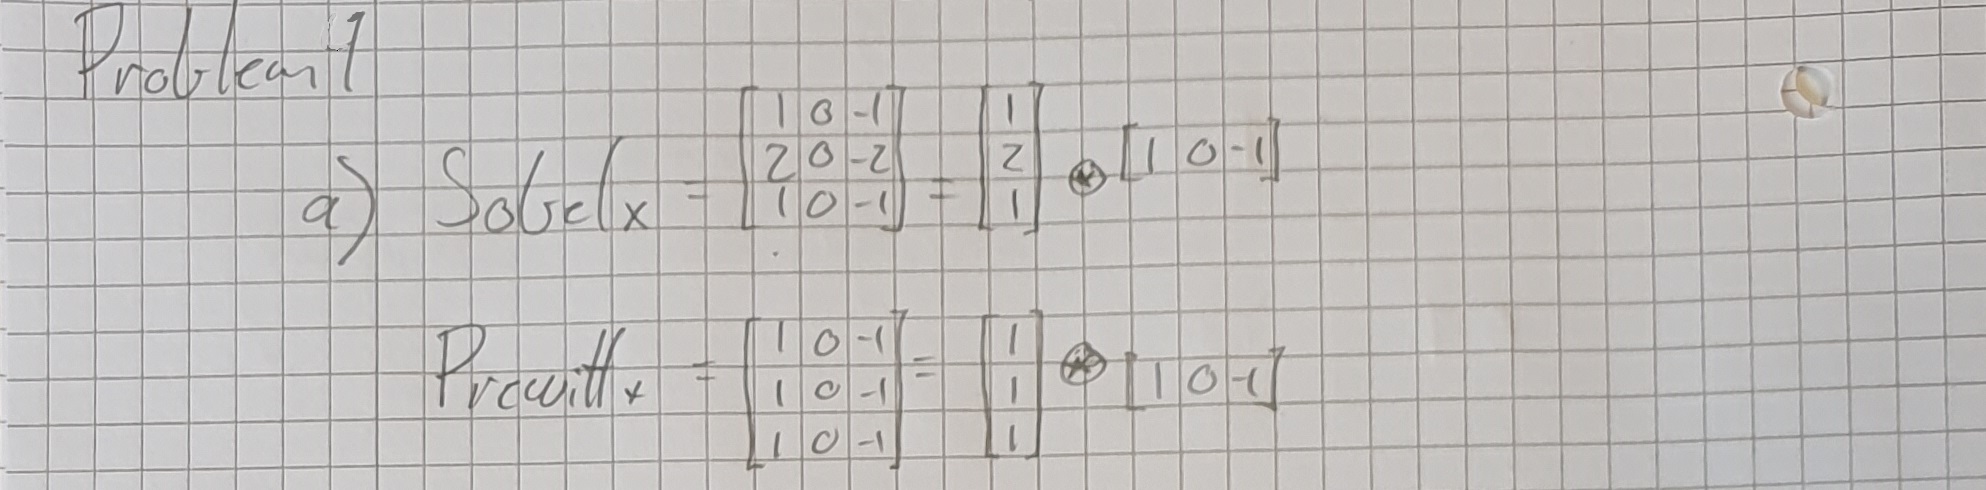 Problem 1
a) Sobel x = [1 0 -1 2 0 -2 1 0 -1] = [1 2 1] ⊛ [1 0 -1]
Prewitt x = [1 0 -1 1 0 -1 1 0 -1] = [1 1 1] ⊛ [1 0 -1]